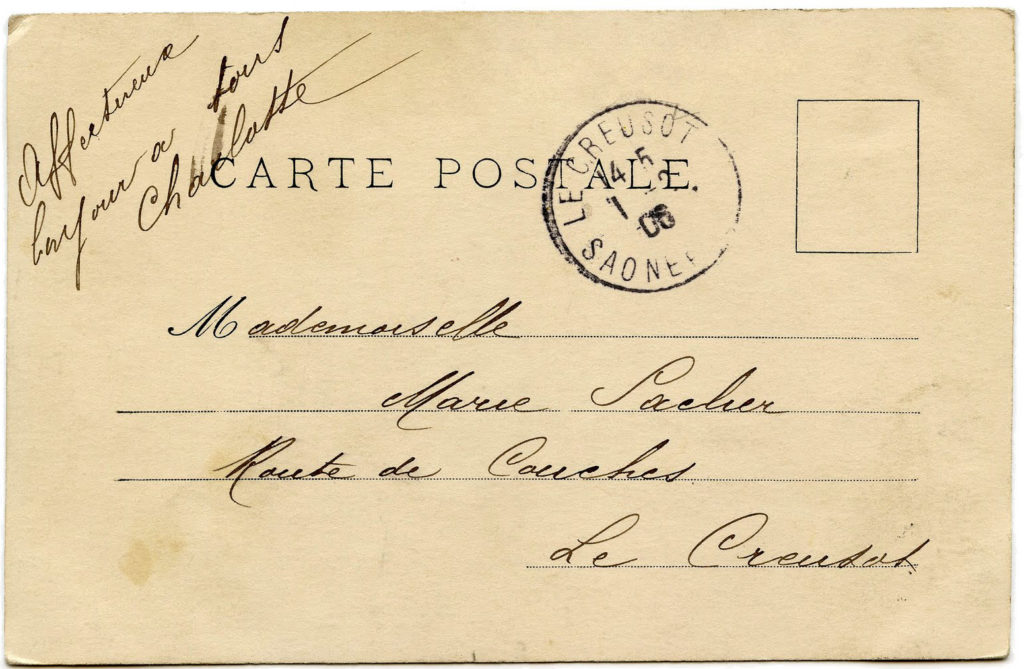 Affectueux
bonjour a tous
Charlotte
CARTE POSTALE
LE CREUSOT
14 5
1 2
06
SAONE
Mademoiselle
Marie Pacher
Route de Couches
Le Creusot